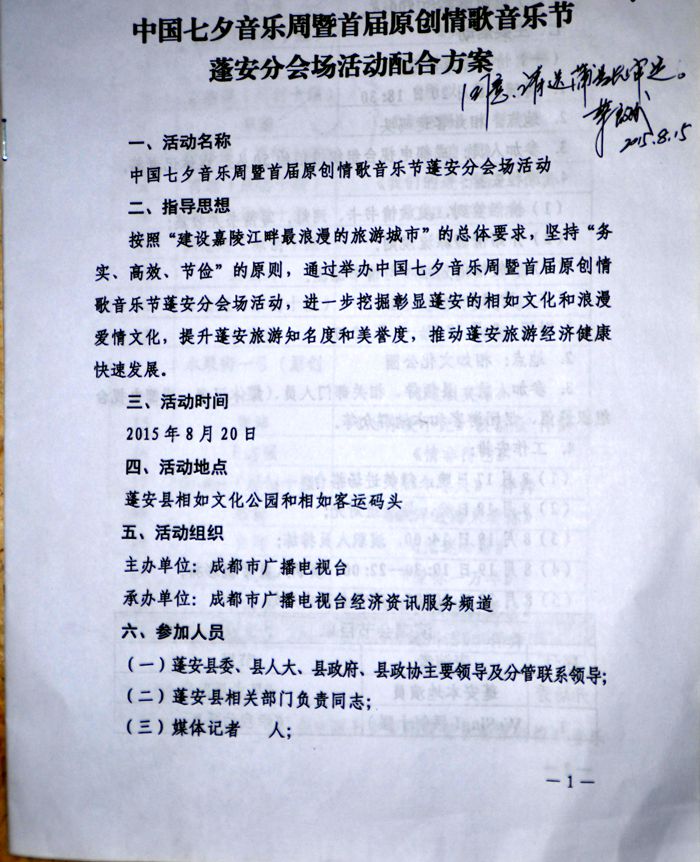 中国七夕音乐周暨首届原创情歌音乐节
蓬安分会场活动配合方案
同意、请送蒲县长审定。
2015.8.15
一、活动名称
中国七夕音乐周暨首届原创情歌音乐节蓬安分会场活动
二、指导思想
按照“建设嘉陵江畔最浪漫的旅游城市”的总体要求，坚持“务
实、高效、节俭”的原则，通过举办中国七夕音乐周暨首届原创情
歌音乐节蓬安分会场活动，进一步挖掘彰显蓬安的相如文化和浪漫
爱情文化，提升蓬安旅游知名度和美誉度，推动蓬安旅游经济健康
快速发展。
三、活动时间
2015年8月20日
四、活动地点
蓬安县相如文化公园和相如客运码头
五、活动组织
主办单位：成都市广播电视台
承办单位：成都市广播电视台经济资讯服务频道
六、参加人员
（一）蓬安县委、县人大、县政府、县政协主要领导及分管联系领导；
（二）蓬安县相关部门负责同志；
（三）媒体记者 人；
—1—